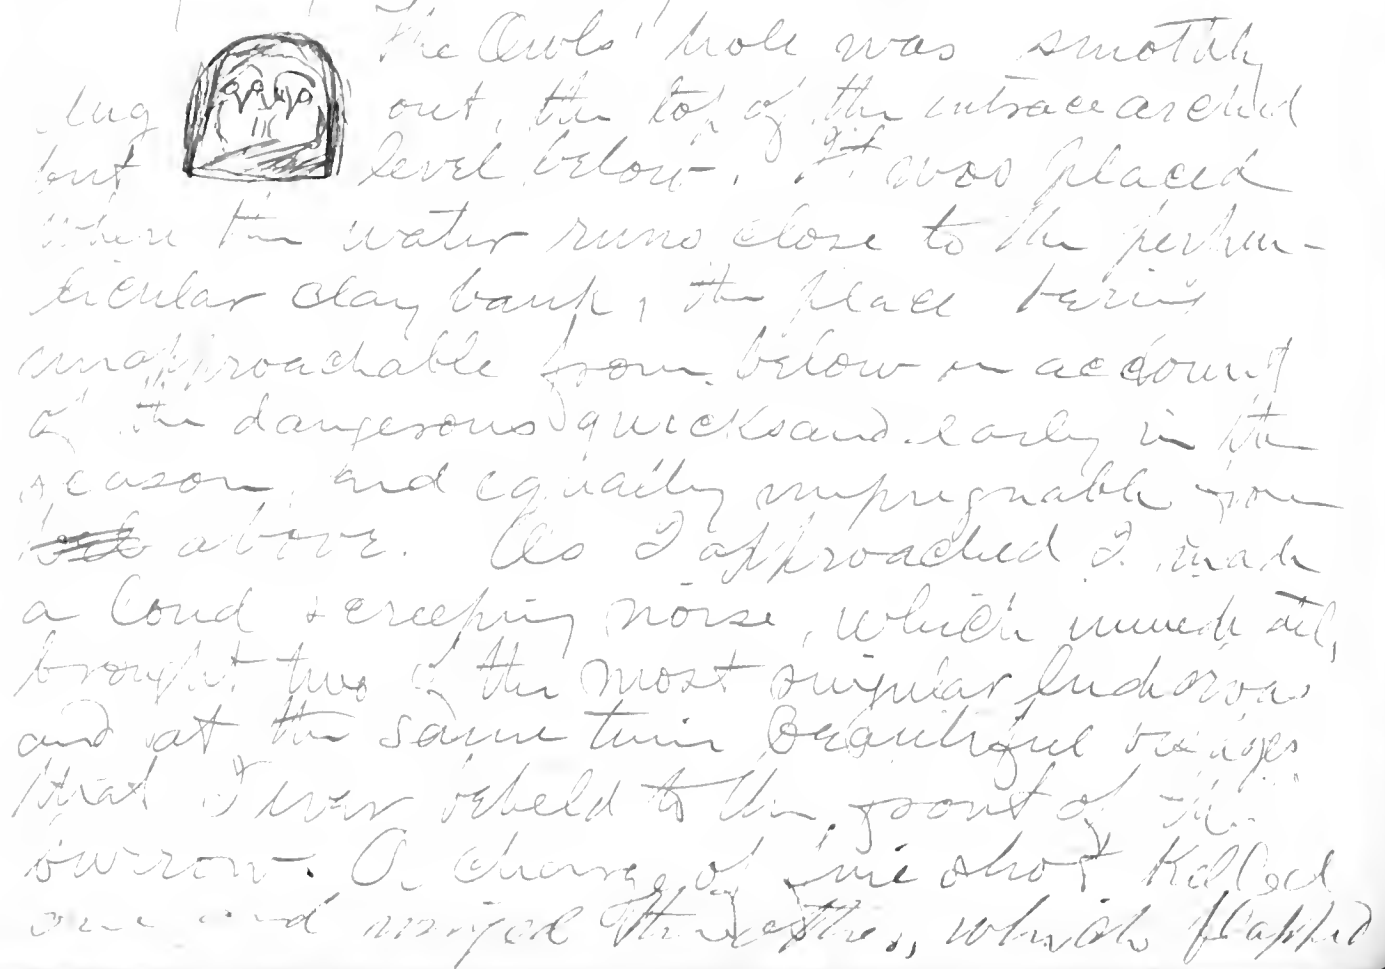 The Owls' hole was smothly
dug out, the top of the intrace arched
but level below. It was placed
where the water runs close to the perpen-
dicular clay bank, the place being
unapproachable from below on account
of the dangerous quicksand early in the
season, and equally impregnable from
above. As I approached I made
a loud screeping noise, which immediately
brought two of the most singular ludicrous
and at the same time beautiful visages
that I ever beheld to the front of the
burrow. A charge of fine shot killed
one and winged the other, which flapped